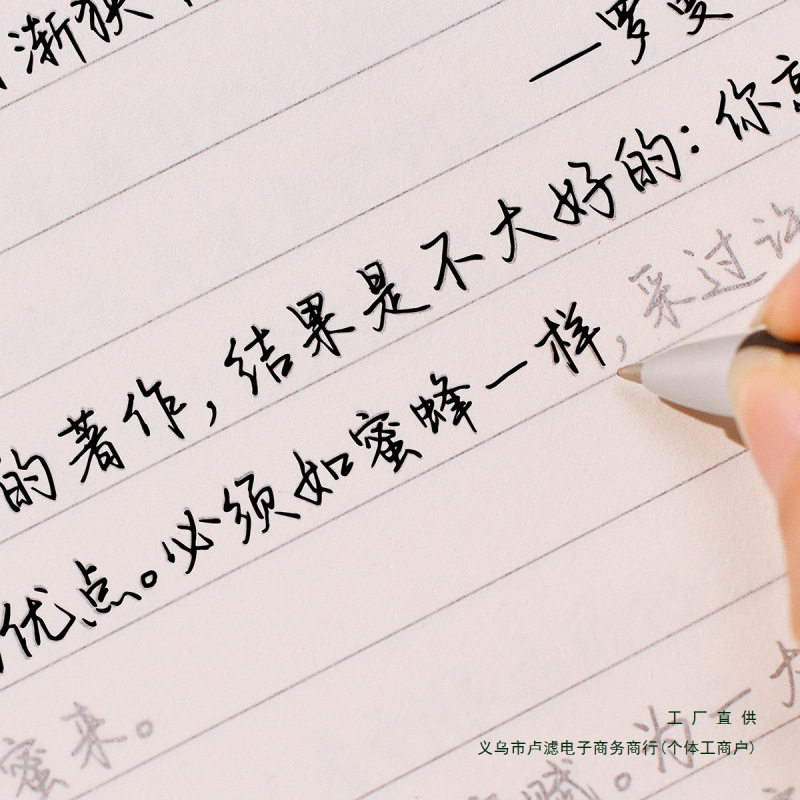 渐狭
—罗曼
的著作,结果是不大好的:你
优点。必须如蜜蜂一样,采过许
蜜来。
赋。为一大
工厂直供
义乌市卢滤电子商务商行(个体工商户)